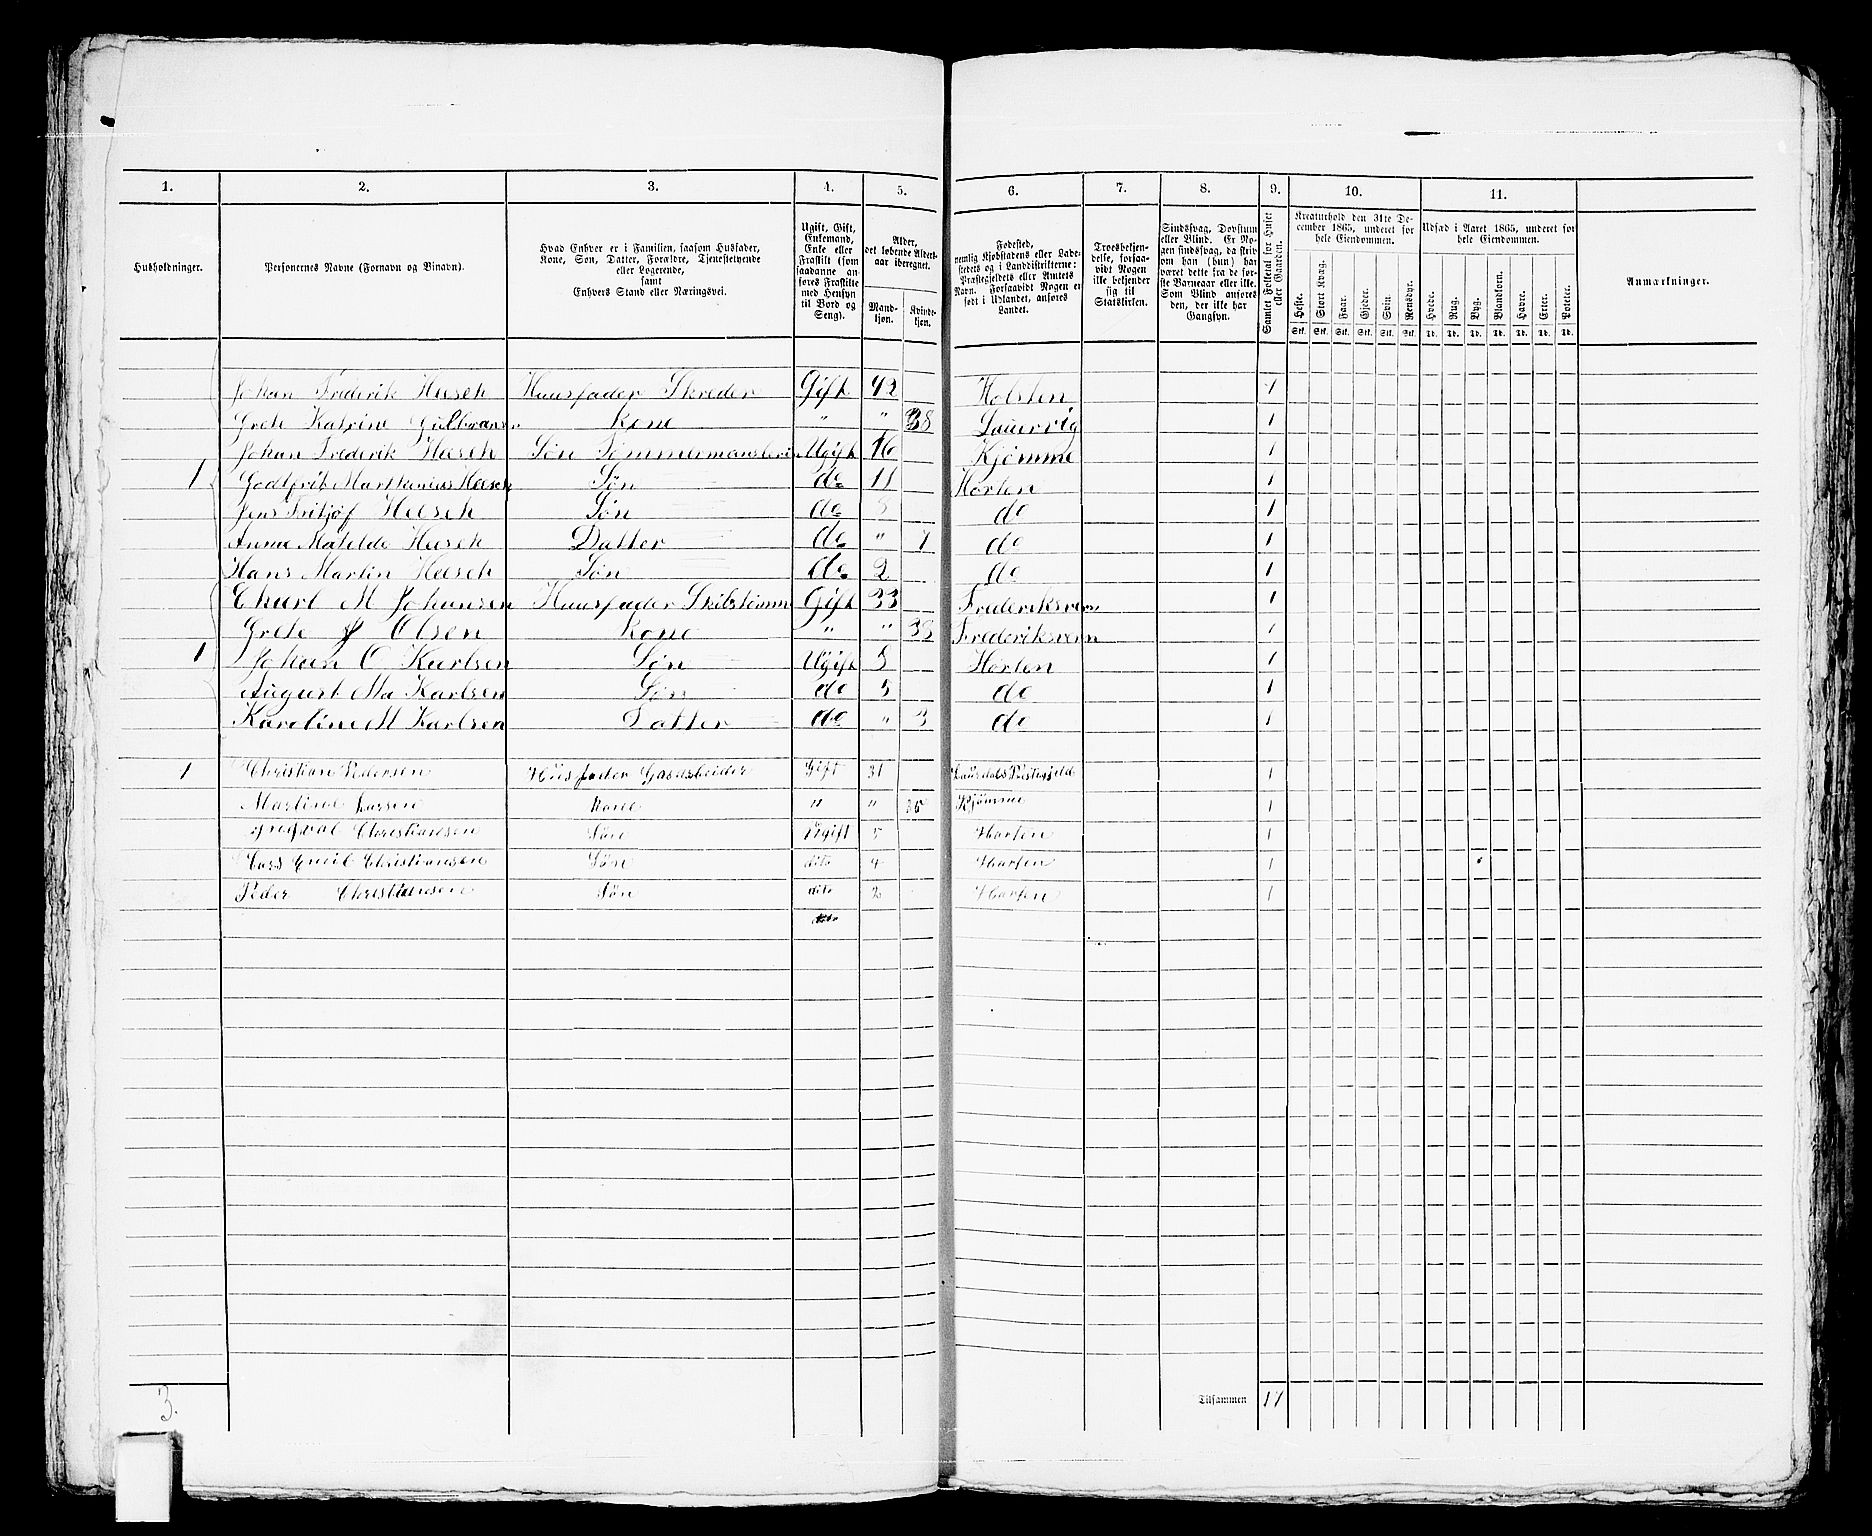 1. 2. 3. 4. 5. 6. 7. 8. 9. 10. 11.
Husholdninger.
Personernes Navne (Fornavn og Binavn).
Hvad Enhver er i Familien, saasom Husfader, Kone, Søn, Datter, Forældre, Tjenestetyende eller Logerende, samt Enhvers Stand eller Næringsvei.
Ugift, Gift, Enkemand, Enke eller Fraskilt (som saadanne anføres Fraskilte med Hensyn til Bord og Seng).
Alder, det løbende Aldersaar iberegnet.
Mandkjøn. Kvindekjøn.
Fødested, nemlig Kjøbstadens eller Ladestedets og i Landdistrikterne: Præstegjeldets eller Amtets Navn. Forsaavidt Nogen er født i Udlandet, anføres Landet.
Troesbekjendelse, forsaavidt Nogen ikke bekjender sig til Statskirken.
Sindssvag, Døvstum eller Blind. Er Nogen sindssvag, da skriv om han (hun) har været dette fra de første Barneaar eller ikke. Som Blind anføres den, der ikke har Gangsyn.
Samlet Folketal for Huset eller Gaarden.
Kreaturhold den 31te December 1865, underet for hele Eiendommen.
Heste. Stort Kvæg. Faar. Gjeder. Svin. Rensdyr.
Stk. Stk. Stk. Stk. Stk. Stk.
Udsæd i Aaret 1865, underet for hele Eiendommen.
Hvede. Rug. Byg. Blandkorn. Havre. Erter. Poteter.
Td. Td. Td. Td. Td. Td. Td.
Anmærkninger.
Johan Frederik Heesch Huusfader Skreder Gift 42 Holsten 1
Grete Katrine Gulbransen Kone " " 38 Lauervig 1
Johan Frederik Heesch Søn Tømmermanslerin Ugift 16 Kjømme 1
1 Marthenius Heesch Søn do 11 Horten 1
Jens Fritjof Heesch Søn do 5 do 1
Anne Matilde Heesch Datter do " 7 do 1
Hans Martin Heesch Søn do 2 do 1
Charl M Johansen Huusfader Skibstømm Gift 33 Frederiksvern 1
Grete J Olsen Kone " " 33 Frederiksvern 1
1 Johan O Karlsen Søn Ugift 5 Horten 1
August Ma Karlsen Søn do 5 do 1
Karoline M Karlsen Datter do " 3 do 1
1 Christian Pedersen Husfader Gift 31 1
Martine Larsen Kone " " Kjømme 1
Ingval Christiansen Søn Ugift 5 Horten 1
Lars Emil Christiansen Søn dito 4 Horten 1
Peder Christiansen Søn dito 2 Horten 1
3.
Tilsammen 17